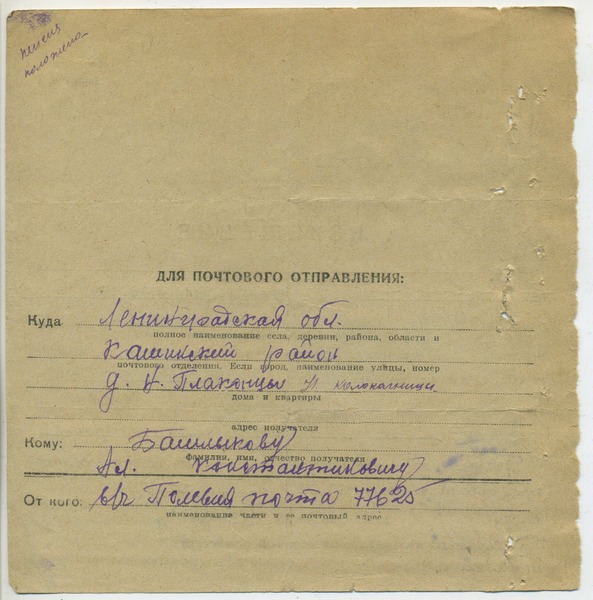 пенсия
положена
ДЛЯ ПОЧТОВОГО ОТПРАВЛЕНИЯ:
Куда Ленинградская обл.
полное наименование села, деревни, района, области и
Кашинский район
почтового отделения. Если город, наименование улицы, номер
д. Н. Плаконцы
дома и квартиры
адрес получателя
Кому: Башлыкову
фамилия, имя, отчество получателя
Ал. Константиновичу
От кого: в/ч Полевая почта 77625
наименование части и ее почтовый адрес